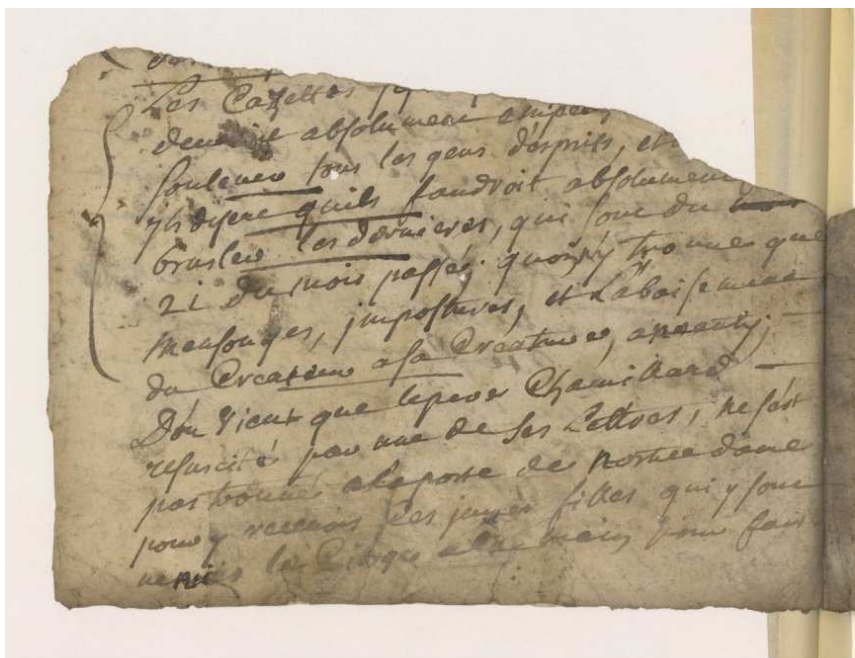 Les Gazettes
absolument
soulever tous les gens d'esprits, et
quils faudroit absolument
brusler les dernieres, qui sont du
21 du mois passé; quon n'y trouve que
mensonges, impostures, et L'abaissement
du Createur a la Creature, aneanty;
D'ou vient que le pere Chamillard
resuscité par une de ses Lettres, ne s'est
pas trouvé a la porte de nostre dame
pour y recevoir les jeunes filles qui y sont
le Cierge a la main, pour fair